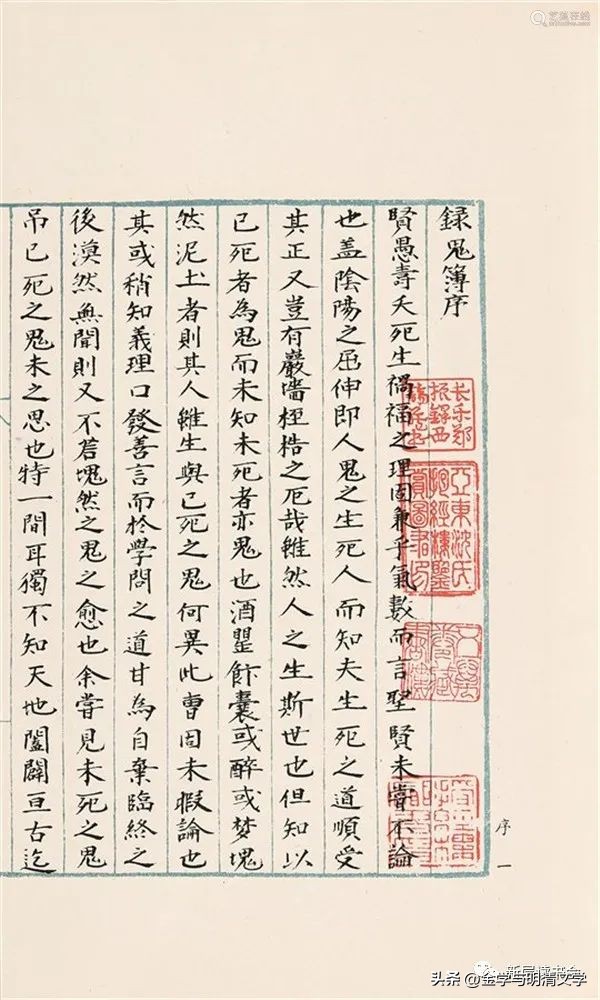 録鬼簿序
賢愚壽夭死生禍福之理固兼乎氣數而言聖賢未嘗不論
也盖陰陽之屈伸即人鬼之生死人而知夫生死之道順受
其正又豈有巖墻桎梏之厄哉雖然人之生斯世也但知以
已死者為鬼而未知未死者亦鬼也酒罌飰囊或醉或夢塊
然泥土者則其人雖生與已死之鬼何異此曹固未暇論也
其或稍知義理口發善言而於學問之道甘為自棄臨終之
後漠然無聞則又不若塊然之鬼之愈也余嘗見未死之鬼
吊已死之鬼未之思也特一間耳獨不知天地闔闢亘古迄
长乐郑
振鐸西
諦藏書
亞東沈氏
抱經樓鑒
賞圖書印
序一
头条 @金学与明清文学